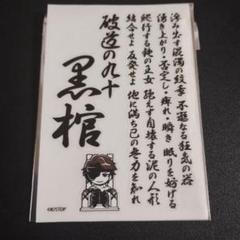 滲み出す混濁の紋章 不遜なる狂気の器
湧き上がり・否定し・痺れ・瞬き 眠りを妨げる
爬行する鉄の王女 絶えず自壊する泥の人形
結合せよ 反発せよ 地に満ち己の無力を知れ
破道の九十
黒棺